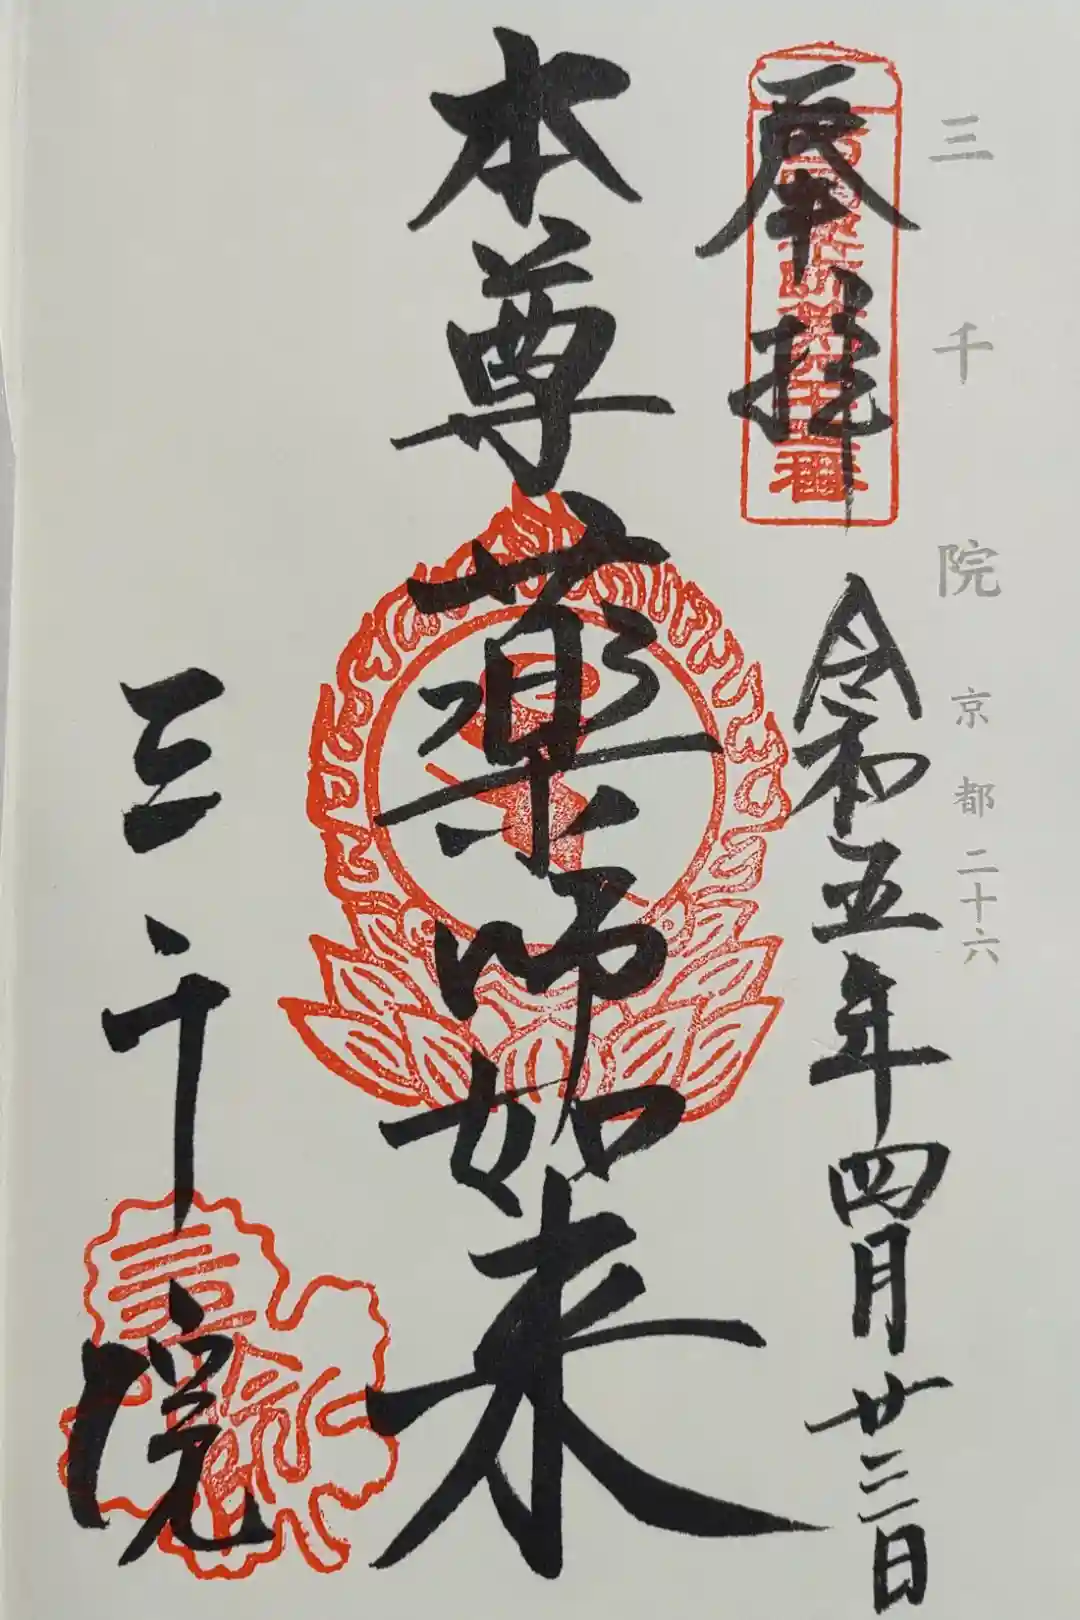 三千院 京都 二十六
奉拝 令和五年四月廿三日
本尊薬師如来
三千院